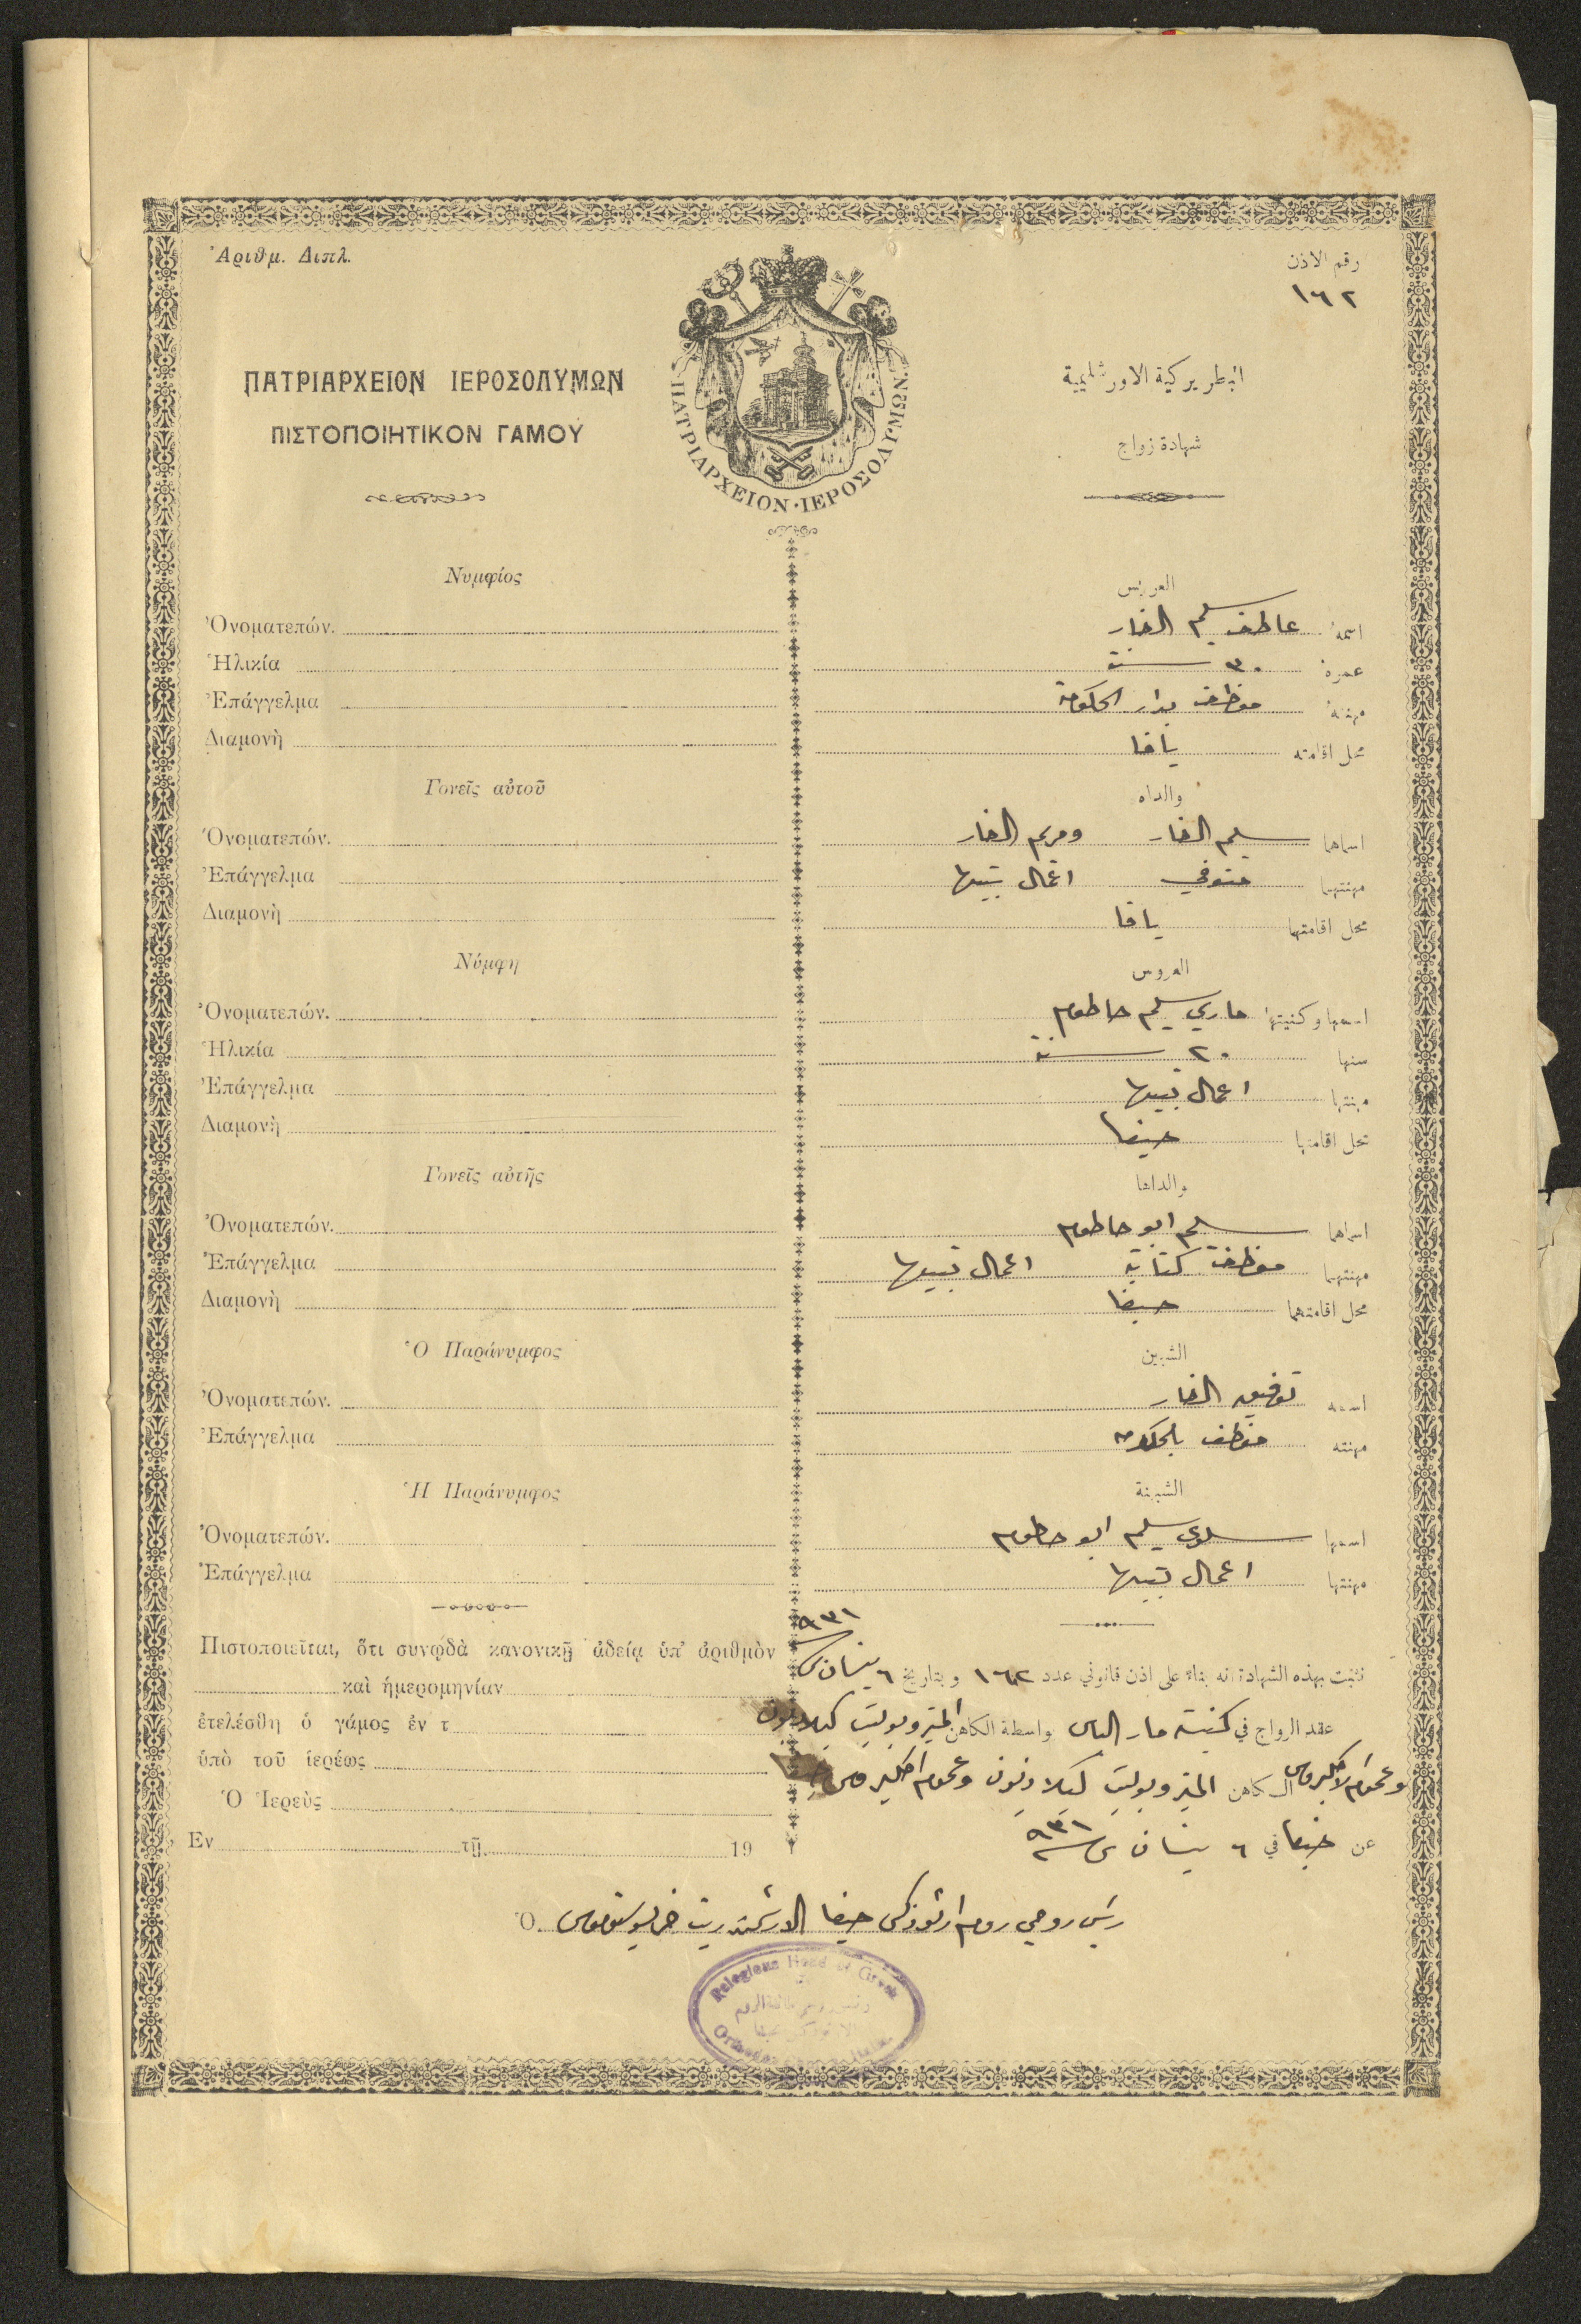 Ἀριθμ. Διπλ.
رقم الاذن
١٦٢
ΠΑΤΡΙΑΡΧΕΙΟΝ ΙΕΡΟΣΟΛΥΜΩΝ
ΠΙΣΤΟΠΟΙΗΤΙΚΟΝ ΓΑΜΟΥ
ΠΑΤΡΙΑΡΧΕΙΟΝ · ΙΕΡΟΣΟΛΥΜΩΝ.
البطريركية الاورشليمية
شهادة زواج
Νυμφίος
Ὀνοματεπών.
Ἡλικία
Ἐπάγγελμα
Διαμονὴ
Γονεῖς αὐτοῦ
Ὀνοματεπών.
Ἐπάγγελμα
Διαμονὴ
Νύμφη
Ὀνοματεπών.
Ἡλικία
Ἐπάγγελμα
Διαμονὴ
Γονεῖς αὐτῆς
Ὀνοματεπών.
Ἐπάγγελμα
Διαμονὴ
Ὁ Παράνυμφος
Ὀνοματεπών.
Ἐπάγγελμα
Ἡ Παράνυμφος
Ὀνοματεπών.
Ἐπάγγελμα
Πιστοποιεῖται, ὅτι συνῳδὰ κανονικῇ ἀδείᾳ ὑπ' ἀριθμὸν
καὶ ἡμερομηνίαν
ἐτελέσθη ὁ γάμος ἐν τ
ὑπὸ τοῦ ἱερέως
Ὁ Ἱερεὺς
Ἐν τῇ 19
العريس
اسمه عاطف سليم الفار
عمره ٣٠ سنة
مهنته موظف بدار الحكومة
محل اقامته يافا
والداه
اسماهما سليم الفار ومريم الفار
مهنتهما متوفي اعمال بيتيها
محل اقامتهما يافا
العروس
اسمها وكنيتها ماري سليم حاطوم
سنها ٢٠ سنة
مهنتها اعمال بيتيها
محل اقامتها حيفا
والداها
اسماهما سليم ابو حاطوم
مهنتهما موظف كتابة اعمال بيتيها
محل اقامتهما حيفا
الشبين
اسمه توفيق الفار
مهنته موظف بالحكومه
الشبينة
اسمها سلوى سليم ابو حاطوم
مهنتها اعمال بيتيها
نثبت بهذه الشهادة انه بناء على اذن قانوني عدد ١٦٢ وبتاريخ ٦ نيسان ٩٣١
عقد الزواج في كنيسة مار الياس واسطة الكاهن المتروبوليت كيلاديون
وعموم الاكليروس الكاهن المتروبوليت كيلاديون وعموم اكليروس
عن حيفا في ٦ نيسان ٩٣١
Ὁ. رئيس روحي روم ارثوذكس حيفا الارشمندريت خريسوستوموس
Relegious Head of Greek